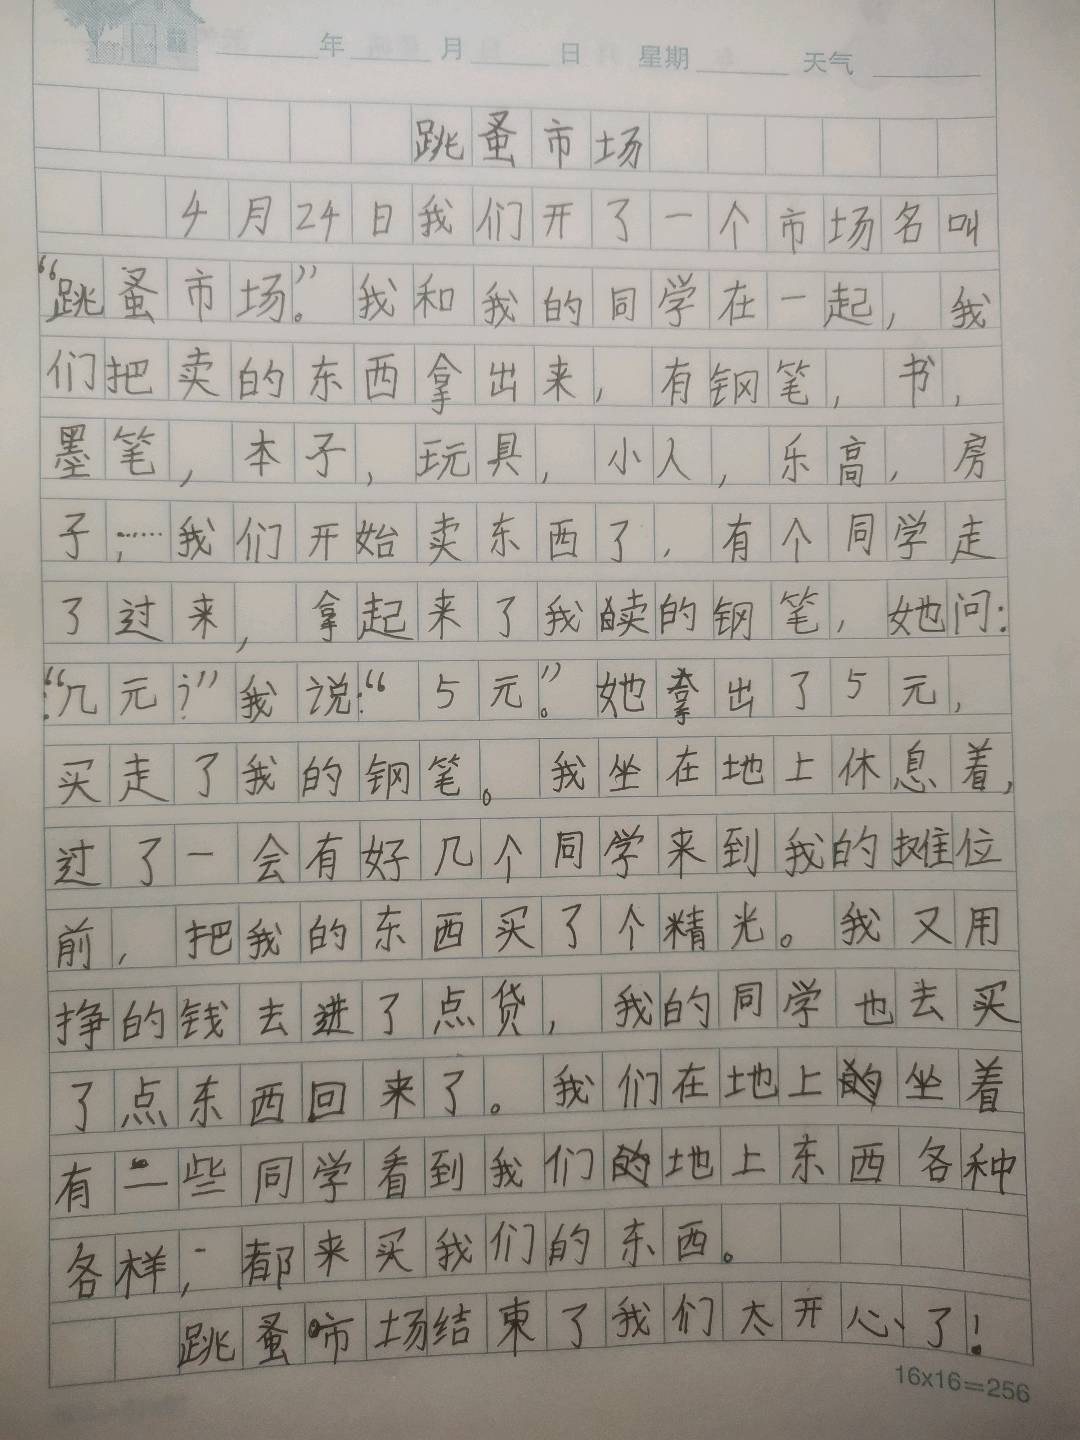 年 月 日 星期 天气
跳蚤市场
4月24日我们开了一个市场名叫
“跳蚤市场。”我和我的同学在一起，我
们把卖的东西拿出来，有钢笔，书，
墨笔，本子，玩具，小人，乐高，房
子，……我们开始卖东西了，有个同学走
了过来，拿起来了我卖的钢笔，她问：
“几元？”我说：“5元。”她拿出了5元，
买走了我的钢笔。我坐在地上休息着，
过了一会有好几个同学来到我的摊位
前，把我的东西买了个精光。我又用
挣的钱去进了点货，我的同学也去买
了点东西回来了。我们在地上坐着
有一些同学看到我们地上东西各种
各样，都来买我们的东西。
跳蚤市场结束了我们太开心了！
16x16=256